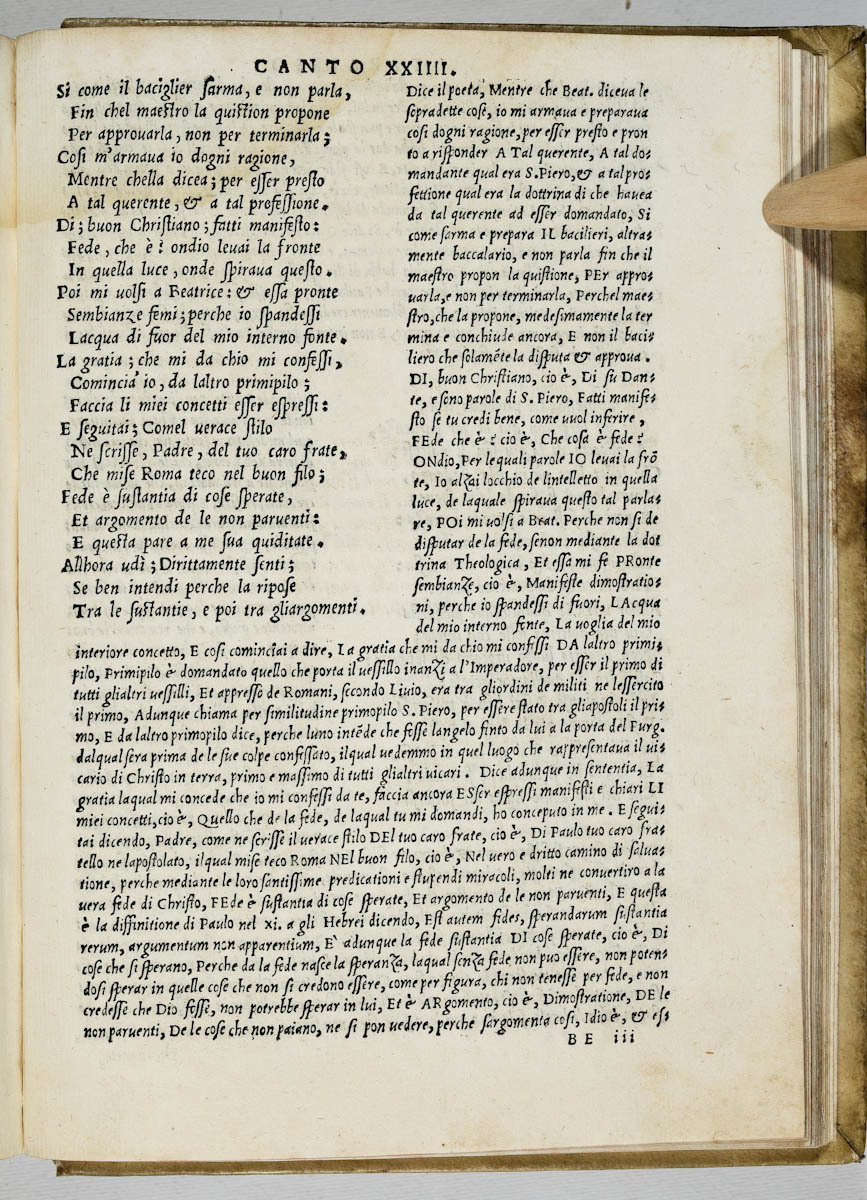 CANTO XXIIII.
Si come il baciglier sarma, e non parla,
Fin chel maestro la quistion propone
Per approuarla, non per terminarla;
Cosi m'armaua io dogni ragione,
Mentre chella dicea; per esser presto
A tal querente, & a tal professione.
Di; buon Christiano; fatti manifesto:
Fede, che è? ondio leuai la fronte
In quella luce, onde spiraua questo.
Poi mi uolsi a Beatrice: & essa pronte
Sembianze femi; perche io spandessi
Lacqua di fuor del mio interno fonte.
La gratia; che mi da chio mi confessi,
Comincia' io, da laltro primipilo;
Faccia li miei concetti esser espressi:
E seguitai; Comel uerace stilo
Ne scrisse, Padre, del tuo caro frate,
Che mise Roma teco nel buon filo;
Fede è sustantia di cose sperate,
Et argomento de le non paruenti:
E questa pare a me sua quiditate.
Allhora udì; Dirittamente senti;
Se ben intendi perche la ripose
Tra le sustantie, e poi tra gliargomenti.
Dice il poeta, Mentre che Beat. diceua le
sopradette cose, io mi armaua e preparaua
cosi dogni ragione, per esser presto e pron
to a risponder A Tal querente, A tal do⸗
mandante qual era S. Piero, & a tal pro⸗
fessione qual era la dottrina di che hauea
da tal querente ad esser domandato, Si
come sarma e prepara IL bacilieri, altra⸗
mente baccalario, e non parla fin che il
maestro propon la quistione, PEr appro⸗
uarla, e non per terminarla, Perchel mae⸗
stro, che la propone, medesimamente la ter
mina e conchiude ancora, E non il baci⸗
liero che solamẽte la disputa & approua.
DI, buon Christiano, cio è, Di su Dan⸗
te, e sono parole di S. Piero, Fatti manife⸗
sto se tu credi bene, come uuol inferire,
FEde che è? cio è, Che cosa è fede?
ONdio, Per lequali parole IO leuai la frõ
te, Io alzai locchio de lintelletto in quella
luce, de laquale spiraua questo tal parla⸗
re, POi mi uolsi a Beat. Perche non si de
disputar de la fede, senon mediante la dot
trina Theologica, Et essa mi fe PRonte
sembianze, cio è, Manifeste dimostratio⸗
ni, perche io spandessi di fuori, LAcqua
del mio interno fonte, La uoglia del mio
interiore concetto, E cosi cominciai a dire, La gratia che mi da chio mi confessi DA laltro primi⸗
pilo, Primipilo è domandato quello che porta il uessillo inanzi a l'Imperadore, per esser il primo di
tutti glialtri uessilli, Et appresso de Romani, secondo Liuio, era tra gliordini de militi ne lessercito
il primo, Adunque chiama per similitudine primopilo S. Piero, per essere stato tra gliapostoli il pri⸗
mo, E da laltro primopilo dice, perche luno intẽde che fesse langelo finto da lui a la porta del Purg.
dalqual sera prima de le sue colpe confessato, ilqual uedemmo in quel luogo che rappresentaua il ui⸗
cario di Christo in terra, primo e massimo di tutti glialtri uicari. Dice adunque in sententia, La
gratia laqual mi concede che io mi confessi da te, faccia ancora ESser espressi manifesti e chiari LI
miei concetti, cio è, Quello che de la fede, de laqual tu mi domandi, ho conceputo in me. E segui⸗
tai dicendo, Padre, come ne scrisse il uerace stilo DEl tuo caro frate, cio è, Di Paulo tuo caro fra⸗
tello ne lapostolato, ilqual mise teco Roma NEl buon filo, cio è, Nel uero e dritto camino di salua⸗
tione, perche mediante le loro santissime predicationi e stupendi miracoli, molti ne conuertiro a la
uera fede di Christo, FEde è sustantia di cose sperate, Et argomento de le non paruenti, E questa
è la diffinitione di Paulo nel xi. a gli Hebrei dicendo, Est autem fides, sperandarum sustantia
rerum, argumentum non apparentium, E' adunque la fede sustantia DI cose sperate, cio è, Di
cose che si sperano, Perche da la fede nasce la speranza, laqual senza fede non puo essere, non poten⸗
dosi sperar in quelle cose che non si credono essere, come per figura, chi non tenesse per fede, e non
credesse che Dio fosse, non potrebbe sperar in lui, Et è ARgomento, cio è, Dimostratione, DE le
non paruenti, De le cose che non paiano, ne si pon uedere, perche sargomenta cosi, Idio è, & es⸗
BE iii